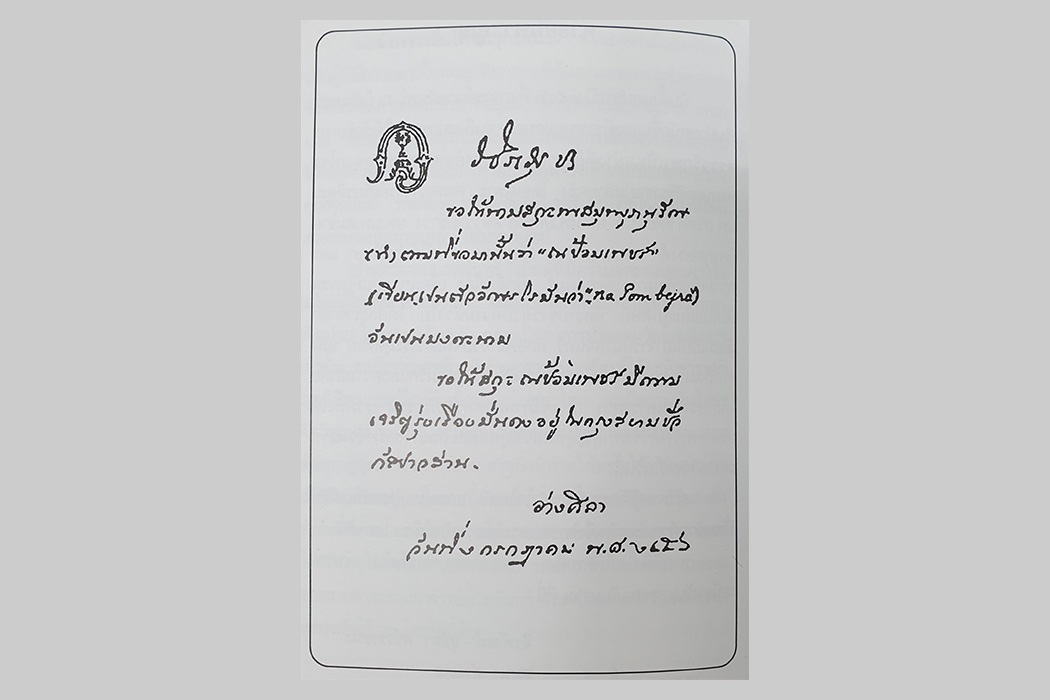 ขอให้นามสกุลพระสมุทบุรานุรักษ์
(ขำ) ตามที่ขอมานั้นว่า "ณ ป้อมเพชร์"
(เขียนเปนตัวอักษรโรมันว่า "na Pombejra")
อันเปนมงคลนาม
ขอให้สกุล ณ ป้อมเพชร์ มีความ
เจริญรุ่งเรืองมั่นคงอยู่ในกรุงสยามชั่ว
กัลปาวสาน.
อ่างศิลา
วันที่ กรกฎาคม พ.ศ. ๒๔๕๖